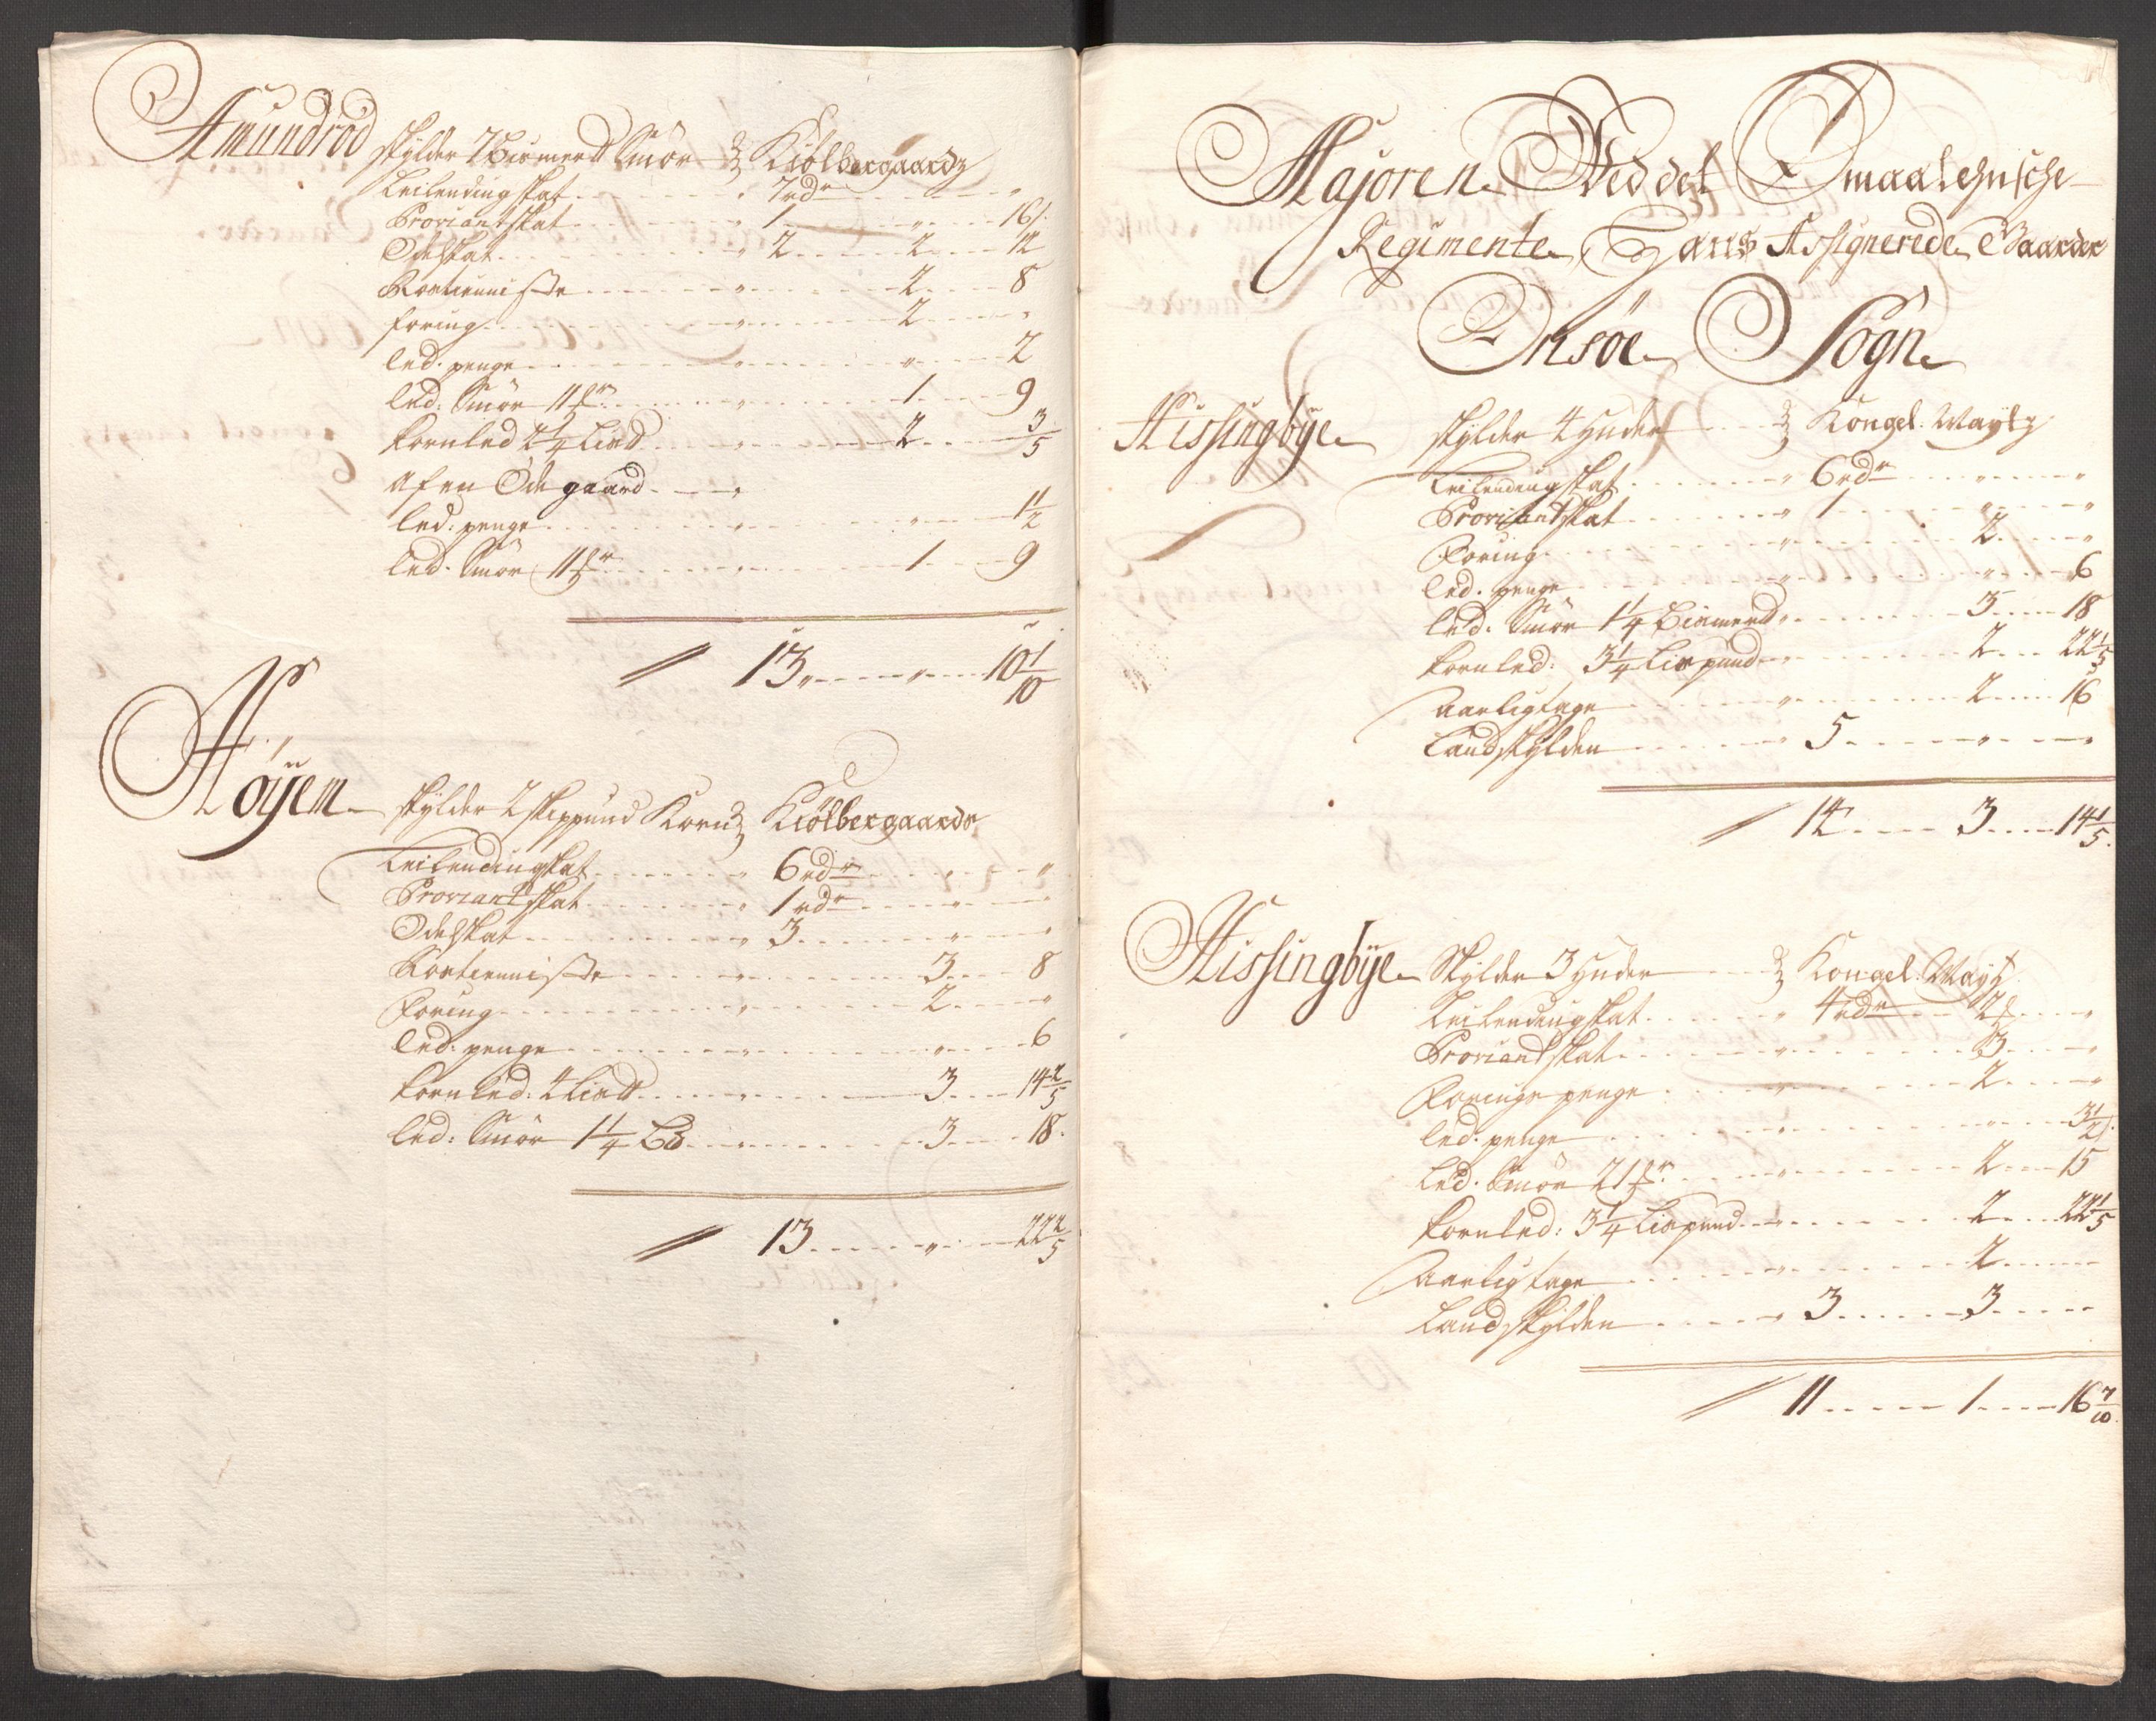 Amundrød skylder 2 Bismerd Smör Kiölbergaards
Leilendingskat 7 rdr
Proviantskat 1 16
Odelskat 2 2 12
Rostienniste 2 8
foring 2
led: penge 2
led: Smör 11 1 9
kornled 2 1/4 Lisd 2 3/5
af en Öde gaard
led: penge 1 1/2
led: Smör 11 1 9
13 10 1/10
Høyem skylder 2 skippund Korn Kiölbergaards
Leilendingskat 6 rdr
Proviantskat 1 rdr
Odelskat 3
Rostienniste 3 8
Foring 2
Led: penge 6
kornled: 4 Lisd 3 14 2/5
led: Smör 1 1/4 3 18
13 22 2/5
Majoren Ved det Smaalehnsche
Regimente Hans Assignerede Gaarder
Onsöe Sogn
Missingbye skylder 4 Huder Kongel: Mayts
Leilendingskat 6 rdr
Proviantskat 1
Foring 2
led. penge 6
led. Smör 1 1/4 Bismerd 3 18
kornled: 3 1/4 Lispund 2 22 1/5
Aarligtage 2 16
Landskylden 5
14 3 14 1/5
Missingbye Skylder 3 Huder Kongel: Mayts
Leilendingskat 4 rdr 2
Proviantskat 3
Foringe penge 2
led. penge 3 1/2
Led. Smör 21 2 15
kornled: 3 1/4 Lispund 2 22 1/5
Aarligtage 2
Landskylden 3 3
11 1 16 7/10